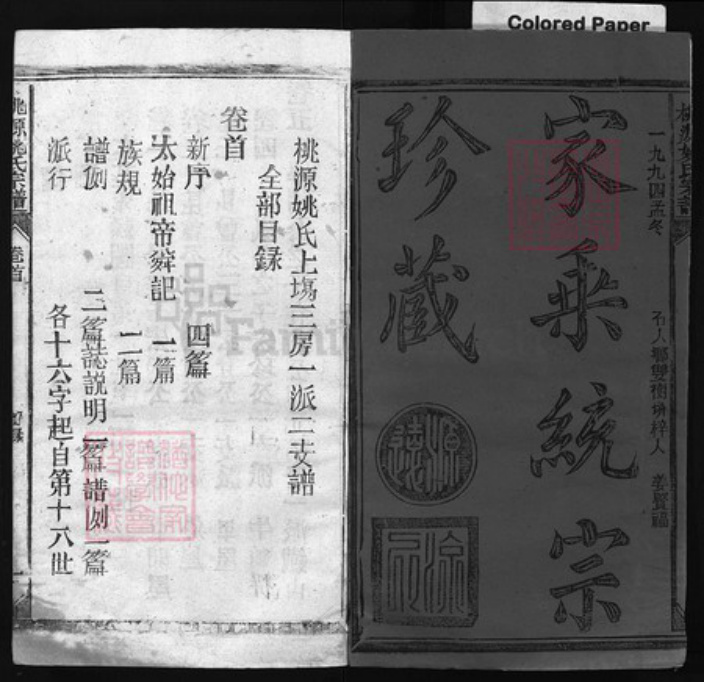 Colored Paper
家乘統宗
珍藏
一九九四孟冬
桃源姚氏宗譜
源遠
桃源姚氏上塲三房一派二支譜
全部目録
卷首
新序 四篇
太始祖帝舜記 一篇
族規 二篇
譜例 二篇誌説明一篇譜例一篇
派行 各十六字起自第十八世
桃源姚氏宗譜 卷首